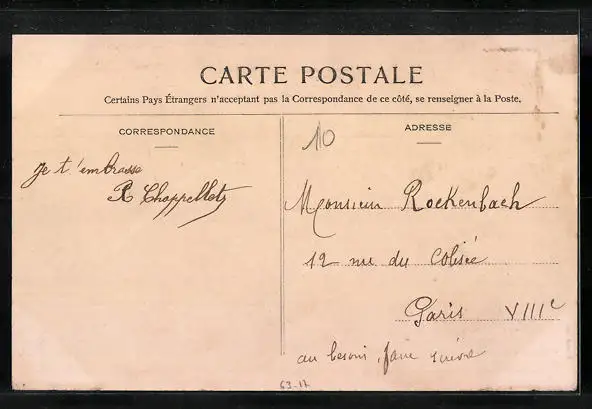 CARTE POSTALE
Certains Pays Étrangers n'acceptant pas la Correspondance de ce côté, se renseigner à la Poste.
CORRESPONDANCE
Je t'embrasse
R Chappellets
110
ADRESSE
Monsieur Rockenbach
12 rue du Colisée
Paris VIIIe
au besoin, faire suivre
63-17